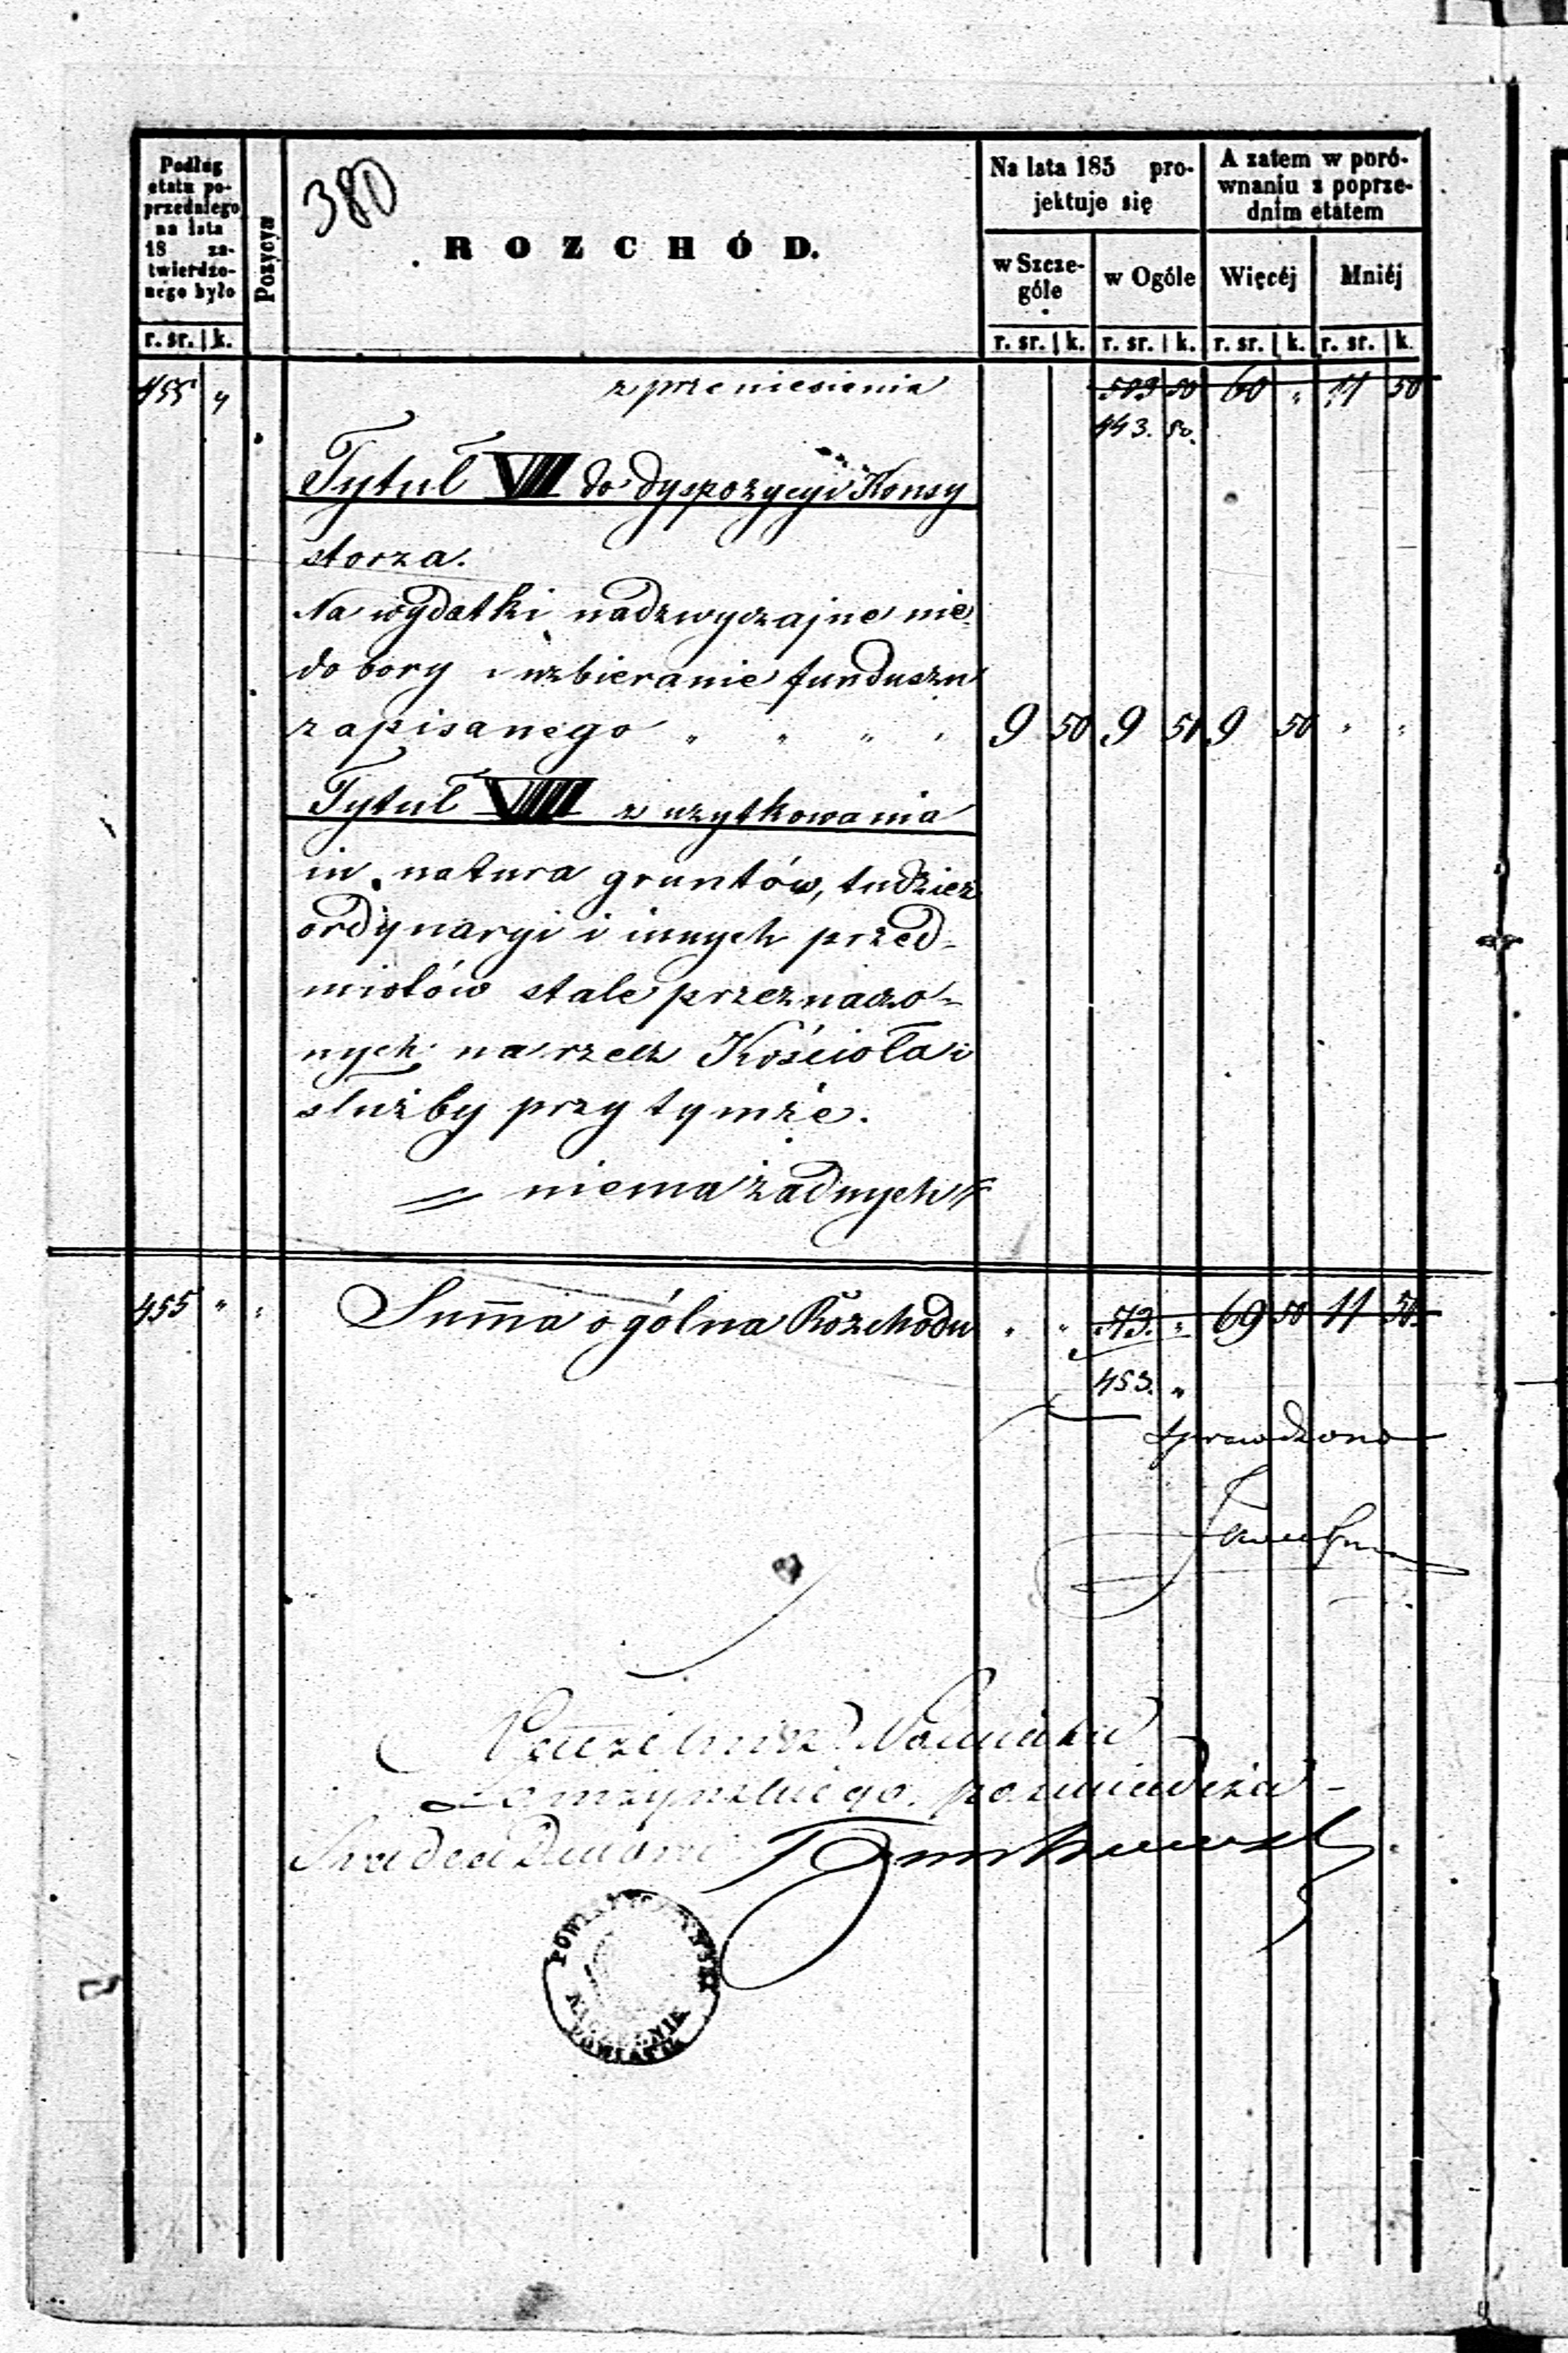 380
Podług
etatu po-
przedniego
na lata
18 za-
twierdzo-
nego było
Pozycya
R O Z C H Ó D.
Na lata 185 pro-
jektuje się
A zatem w poró-
wnaniu z poprze-
dnim etatem
w Szcze-
góle
w Ogóle
Więcéj
Mniéj
r. sr. k. r. sr. k. r. sr. k. r. sr. k. r. sr. k.
455 " z przeniesienia 503 50 60 " 11 50
443. 50.
Tytuł VIII do dyspozycyi Konsy
storza.
Na wydatki nadzwyczajne nie
dobory i uzbieranie funduszu
zapisanego " " " " 9 50 9 50 9 50 " "
Tytuł VIIII z użytkowania
in natura gruntów, tudzież
ordynaryi i innych przed-
miotów stale przeznaczo-
nych na rzecz Kościoła i
służby przy tymże.
= niema żadnych =
455 " " Summa ogólna Rozchodu " " 513. " 69 50 11 50
453. "
Sprawdzono
Naczelnik Powiatu
Łomzynskiego. poswiadcza
POWIAT
NACZELNIK
POWIATU